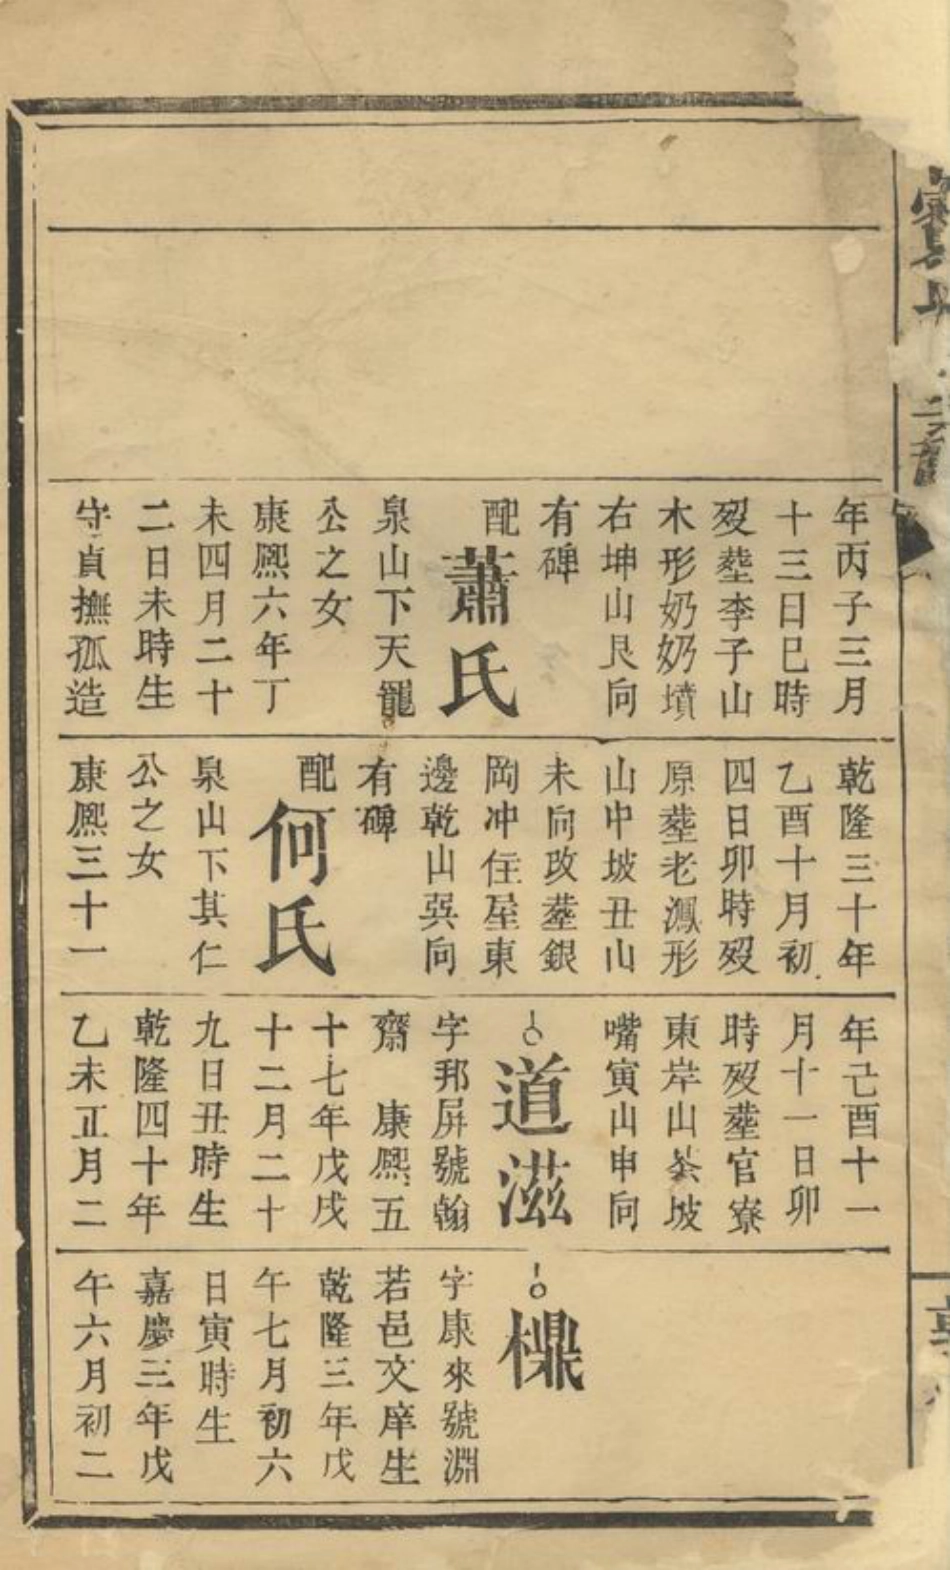 年丙子三月
十三日巳時
歿塟李子山
木形奶奶墳
右坤山艮向
有碑
配蕭氏
泉山下天龍
公之女
康熙六年丁
未四月二十
二日未時生
守貞撫孤造
乾隆三十年
乙酉十月初
四日卯時歿
原塟老鳳形
山中坡丑山
未向改塟銀
岡冲住屋東
邊乾山巽向
有碑
配何氏
泉山下其仁
公之女
康熙三十一
年己酉十一
月十一日卯
時歿塟官寮
東岸山坡
嘴寅山申向
道滋
字邦屏號翰
齋 康熙五
十七年戊戌
十二月二十
九日丑時生
乾隆四十年
乙未正月二
櫐
字康來號淵
若邑文庠生
乾隆三年戊
午七月初六
日寅時生
嘉慶三年戊
午六月初二